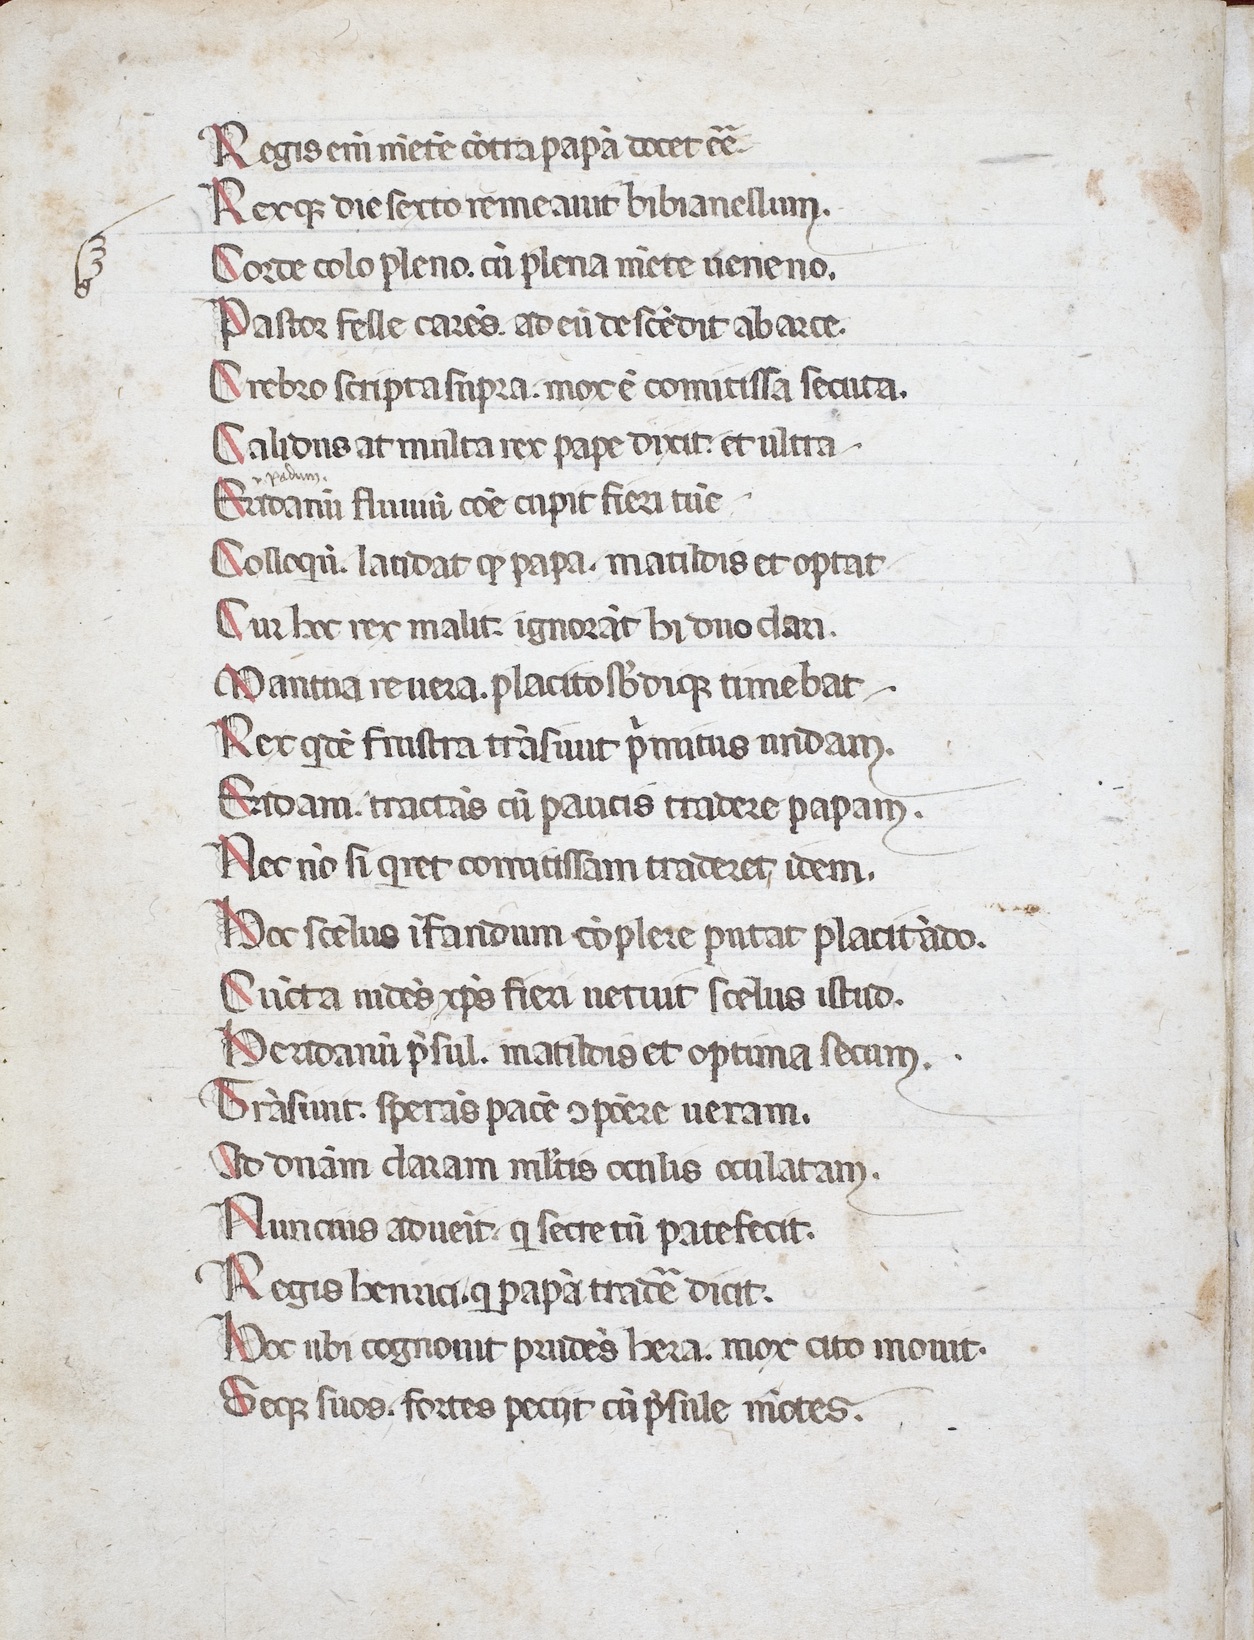 Regis eni̅ me̅te̅ co̅tra papa̅ docet ee̅.
Rexq; die sexto remeauit bibianellum.
Corde colo pleno. cu̅ plena me̅te ueneno.
Pastor felle care̅s. ad eu̅ desce̅dit ab arce.
Crebro scripta supra. mox e̅ comitissa secuta.
Calidus at multa rex pape dixit. et ultra
padum.
Eridanu̅ fluuiu̅ coe̅ cupit fieri tu̅c
Colloqu̅. laudat papa. matildis et optat
Cur hoc rex malit. ignora̅t hi duo clari.
Mantua reuera. placito sb̓diq; timebat
Rex qde̅ frustra tra̅siuit pͥmitus undam.
Eridani. tracta̅s cu̅ paucis tradere papam.
Nec no̅ si qͥret comitissam traderet, idem.
Hoc scelus i̅fandum co̅plere putat placita̅do.
Cu̅cta uide̅s xp̅s fieri uetuit scelus istud.
Heridanu̅ p̅sul. matildis et optima secum.
Tra̅siuit. spera̅s pace̅ ꝯpo̅ere ueram.
Ad dna̅m claram ml̅tis oculis oculatam.
Nuncius adueit. qͥ secretu̅ patefecit.
Regis henrici. qͥ papa̅ trade̅ dicit.
Hoc ubi cognouit prude̅s hera. mox cito mouit.
Seq; suos. fortes peciit cu̅ p̅sule mo̅tes.